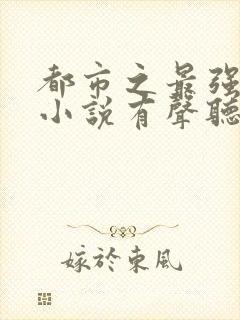 都市之最強
小說有聲聽
嫁於東風